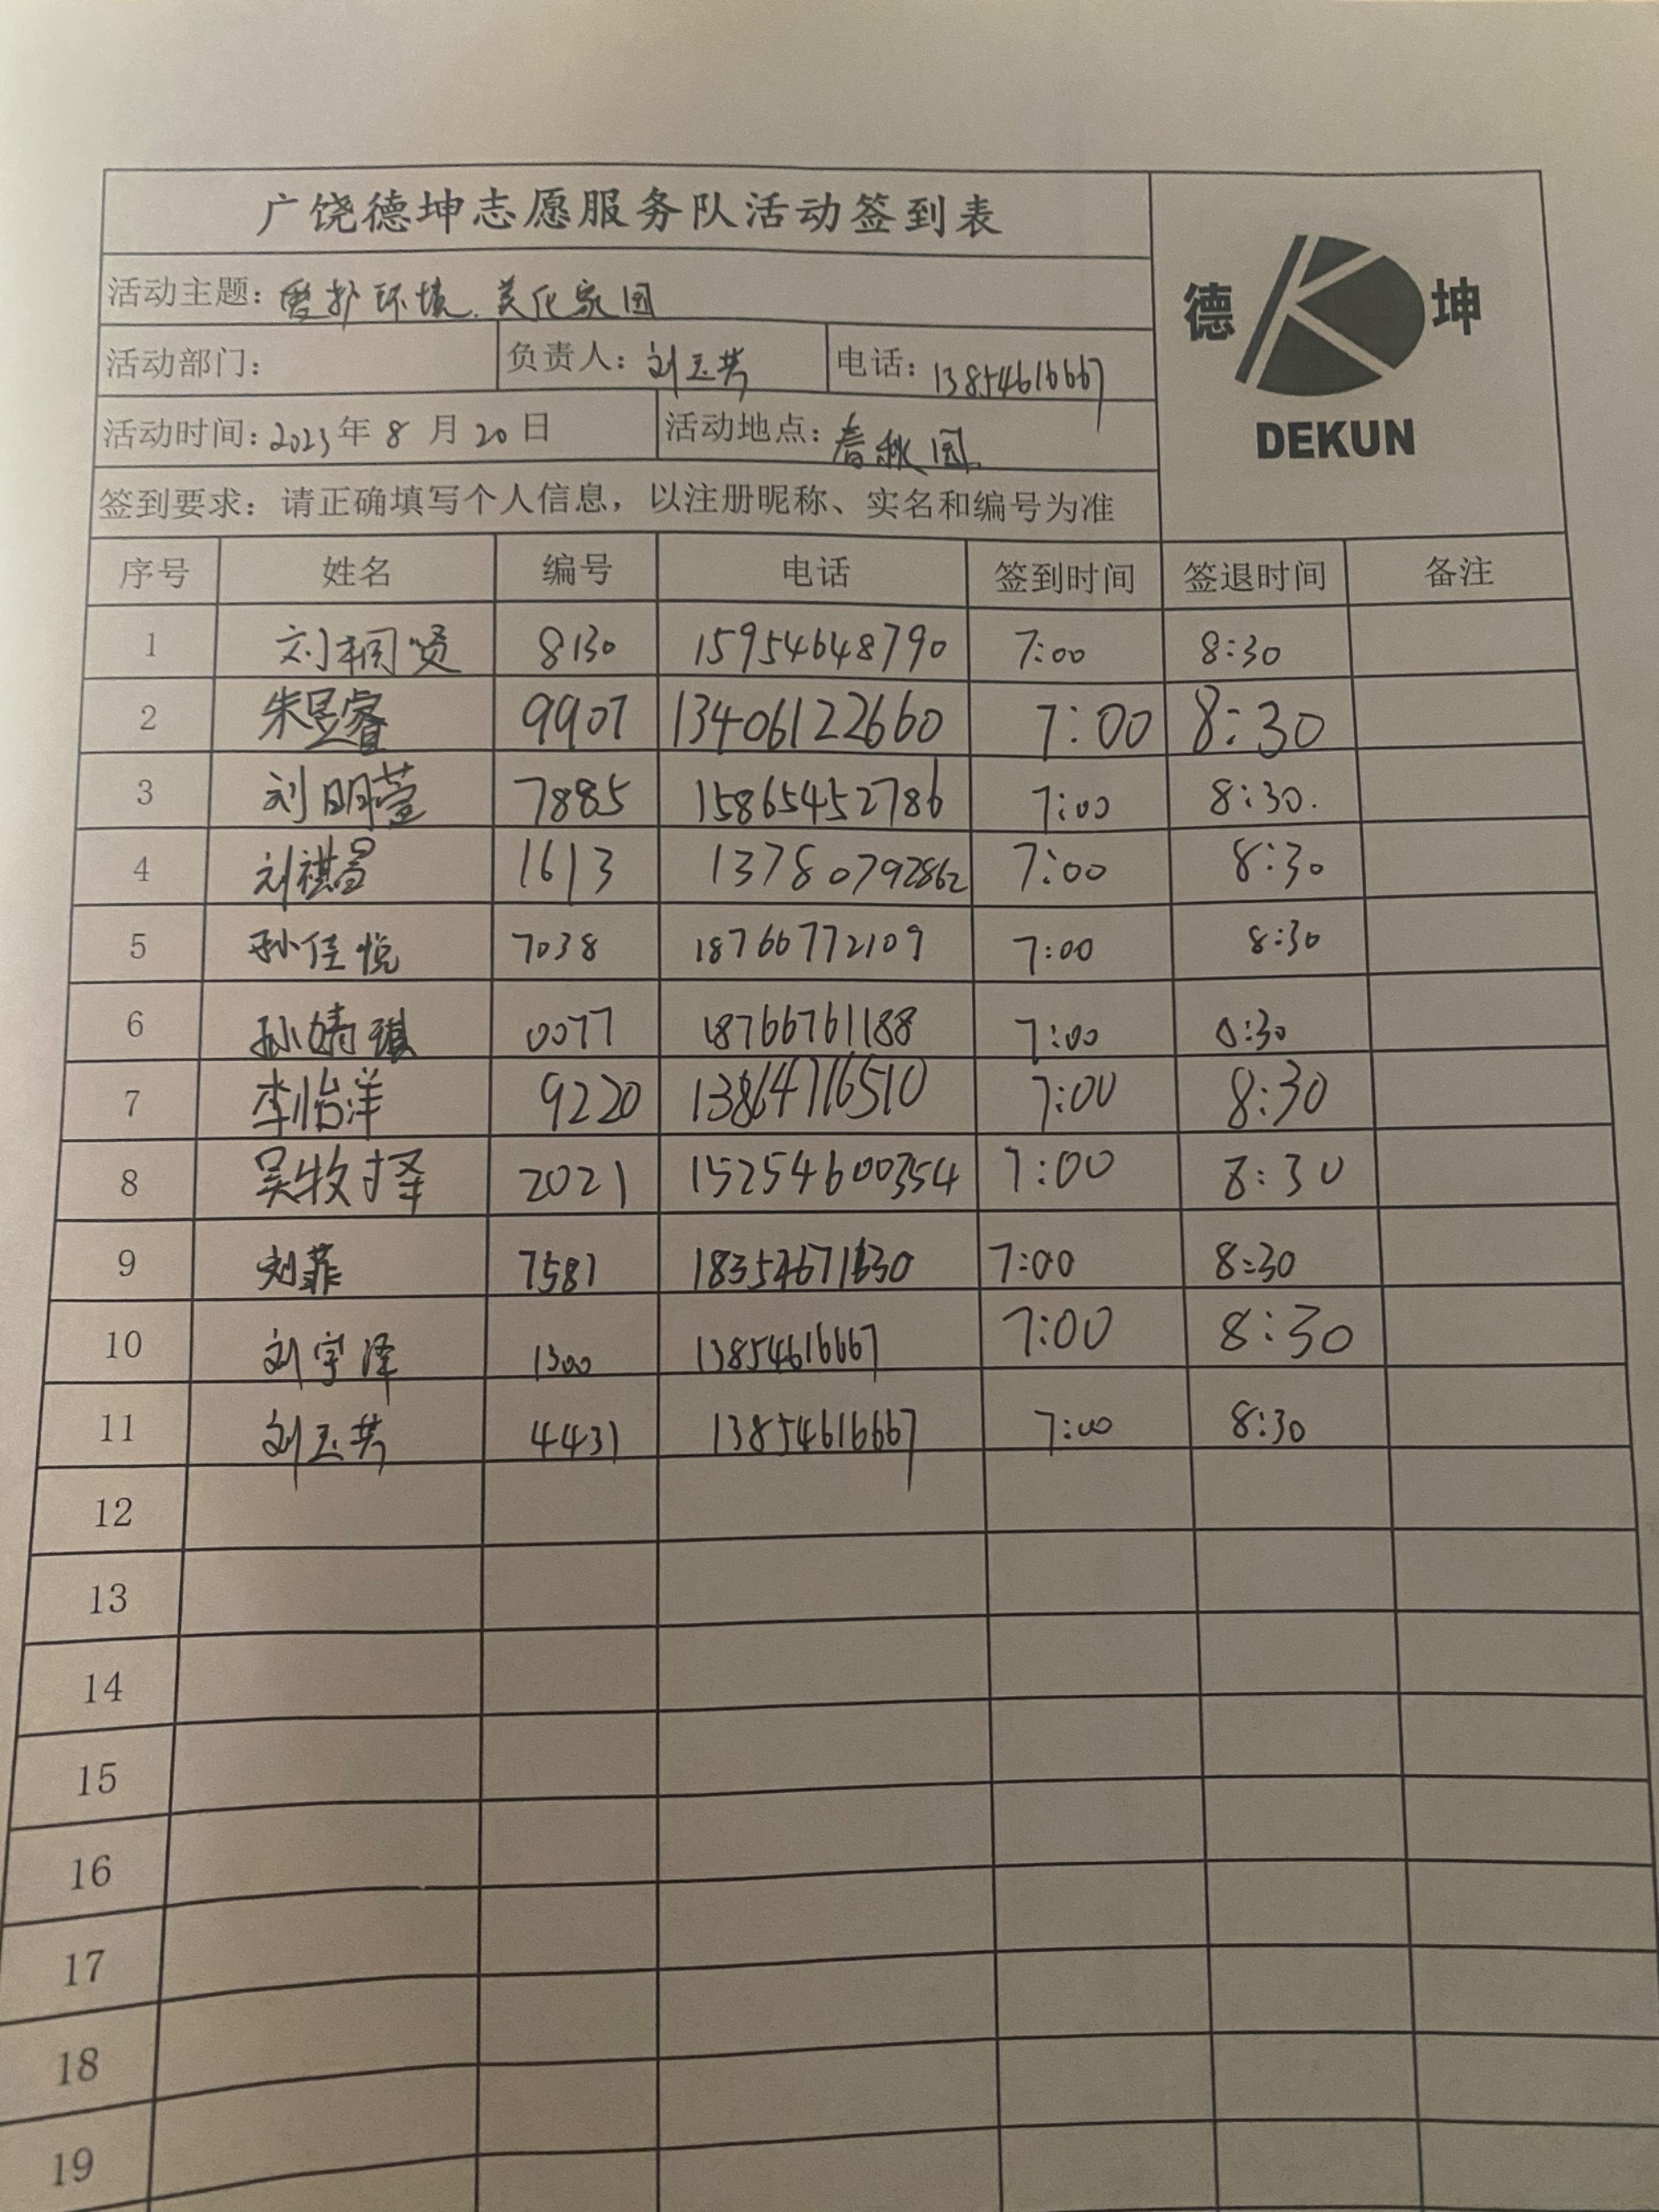 广饶德坤志愿服务队活动签到表
德 坤
DEKUN
活动主题：爱护环境.美化家园
活动部门： 负责人：刘玉芳 电话：13854616667
活动时间：2023年8月20日 活动地点：春秋园.
签到要求：请正确填写个人信息，以注册昵称、实名和编号为准
序号 姓名 编号 电话 签到时间 签退时间 备注
1 刘桐贤 8130 15954648790 7:00 8:30
2 朱昱睿 9907 13406122660 7:00 8:30
3 刘明萱 7885 15865452786 7:00 8:30.
4 刘祺昌 1613 13780792862 7:00 8:30
5 孙佳悦 7038 18766772109 7:00 8:30
6 孙婧琪 0077 18766761188 7:00 8:30
7 李怡洋 9220 13864716510 7:00 8:30
8 吴牧择 2021 15254600354 7:00 8:30
9 刘菲 7581 7:00 8:30
10 刘宇泽 1300 13854616667 7:00 8:30
11 刘玉芳 4431 13854616667 7:00 8:30
12
13
14
15
16
17
18
19